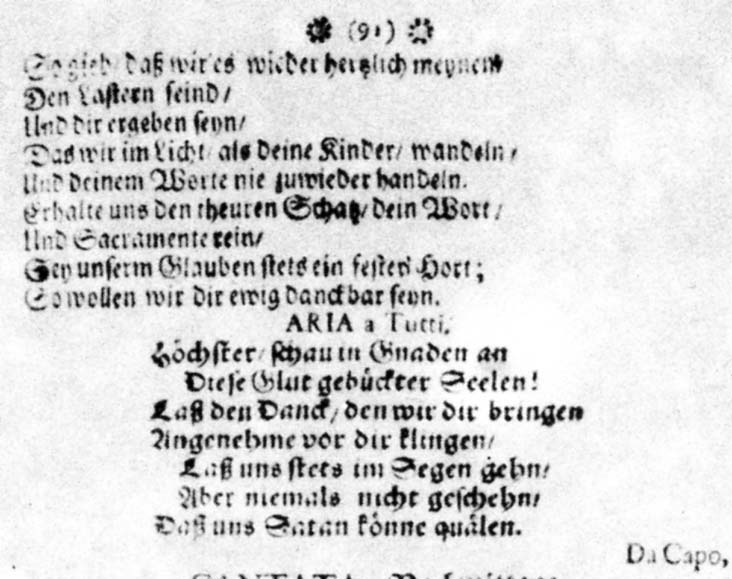 (91)
So gieb/ daß wir es wieder hertzlich meynen/
Den Lastern feind/
Und dir ergeben seyn/
Das wir im Licht/ als deine Kinder/ wandeln/
Und deinem Worte nie zuwieder handeln.
Erhalte uns den theuren Schatz/ dein Wort/
Und Sacramente rein/
Sey unserm Glauben stets ein fester Hort;
So wollen wir dir ewig danckbar seyn.
ARIA a Tutti.
Höchster/ schau in Gnaden an
Diese Glut gebückter Seelen!
Laß den Danck/ den wir dir bringen
Angenehme vor dir klingen/
Laß uns stets im Segen gehn/
Aber niemals nicht geschehn/
Daß uns Satan könne quälen.
Da Capo,
CANTATA